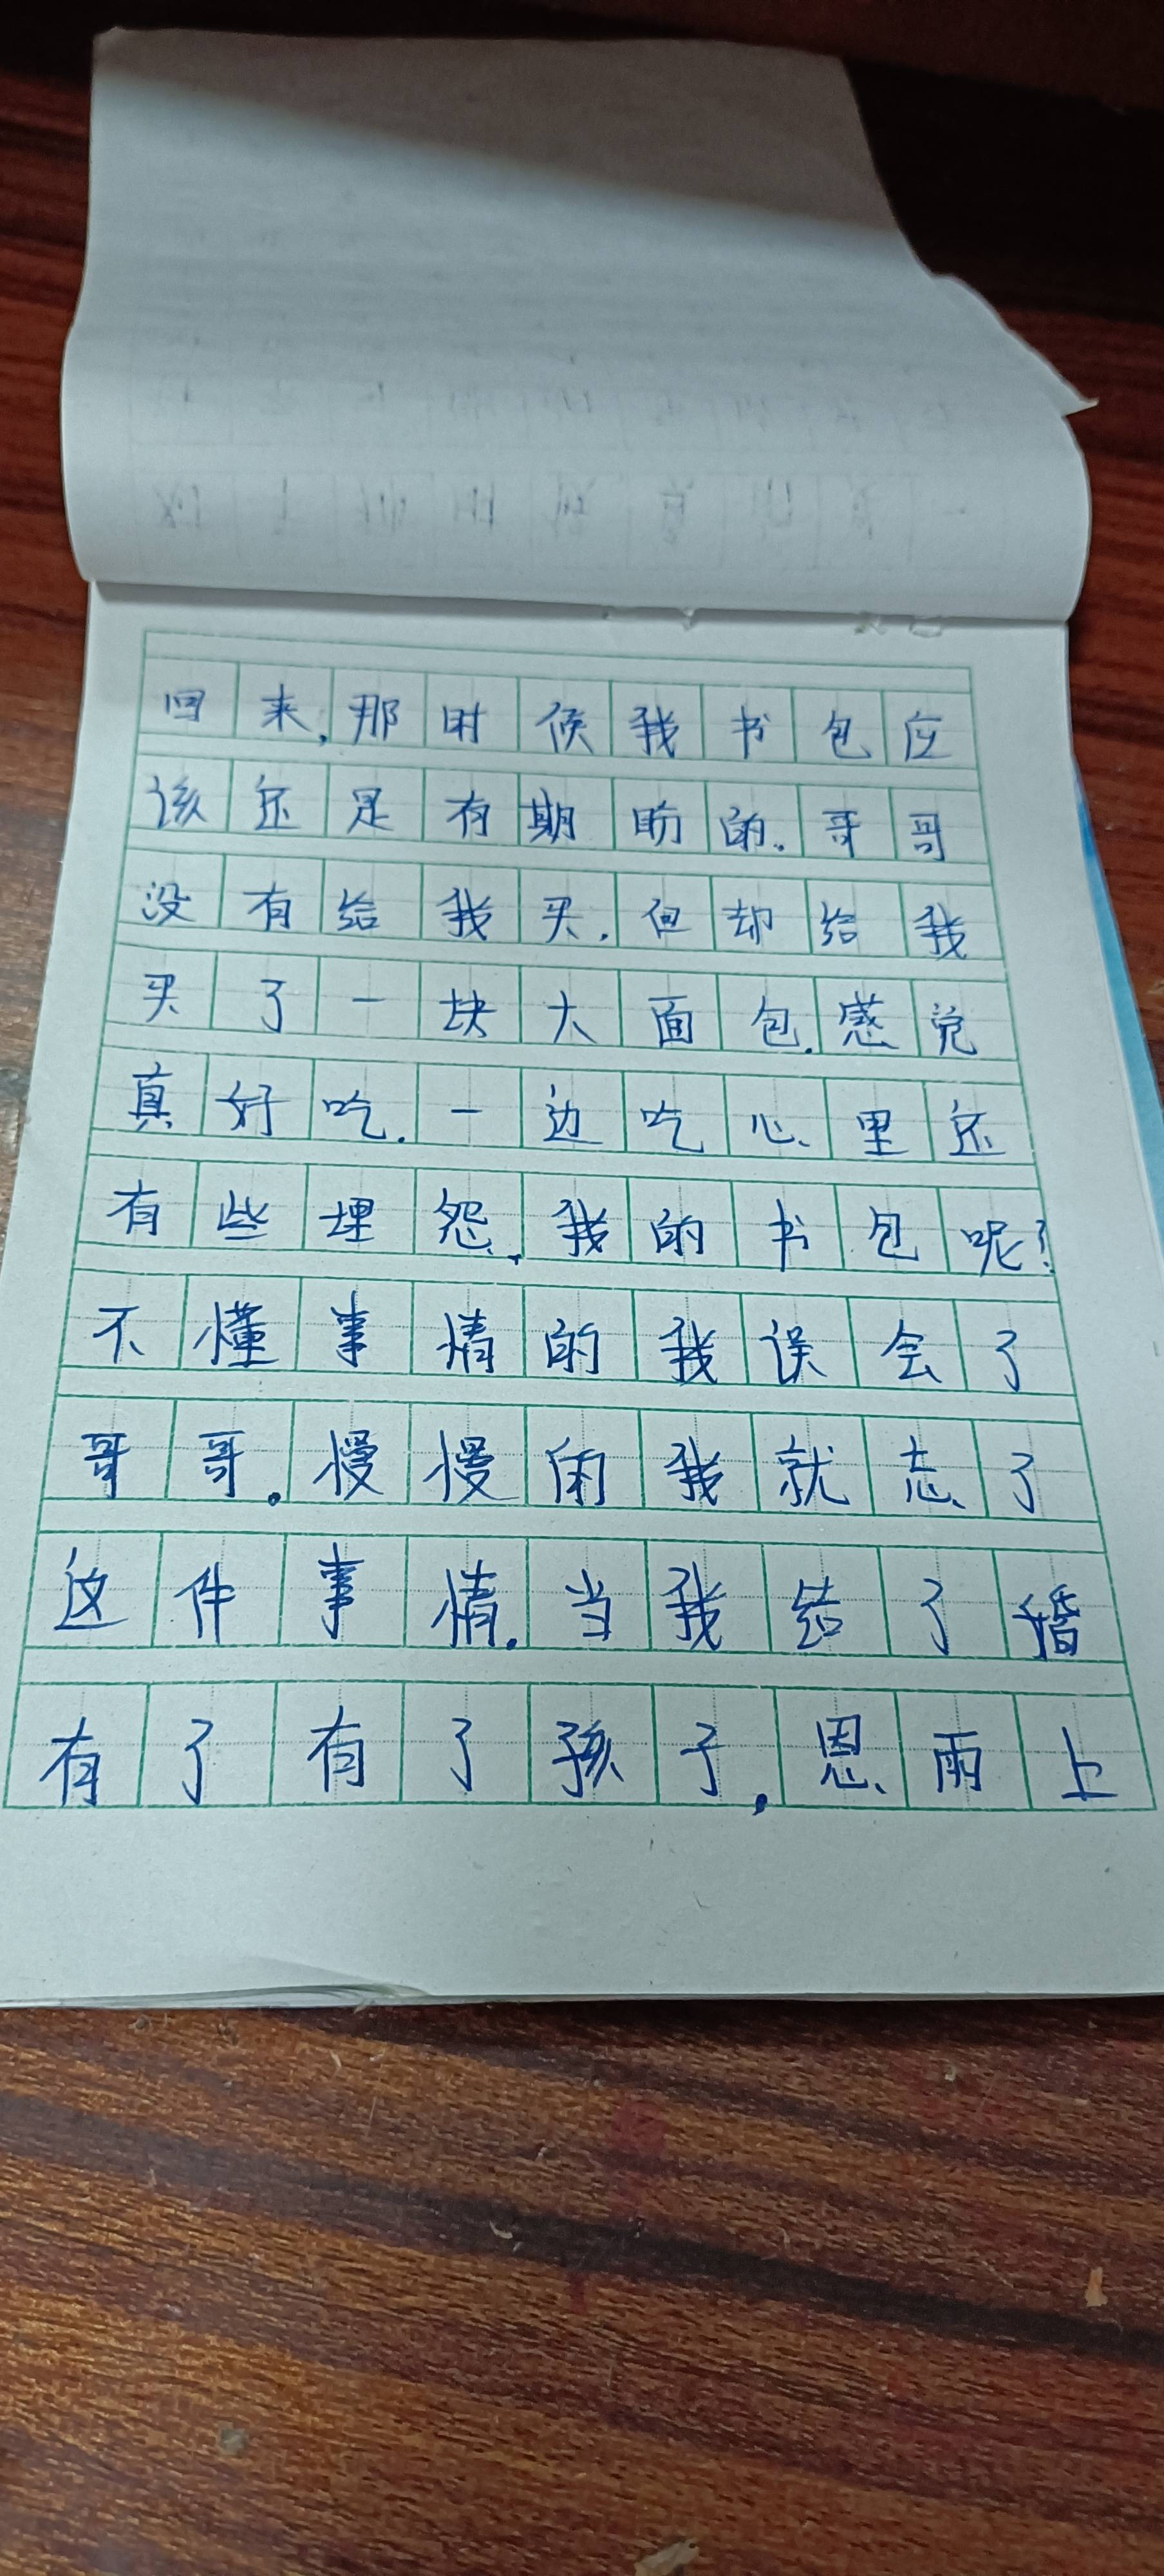 回来,那时候我书包应
该还是有期盼的.哥哥
没有给我买.但却给我
买了一块大面包.感觉
真好吃.一边吃心里还
有些埋怨,我的书包呢?
不懂事情的我误会了
哥哥.慢慢的我就忘了
这件事情.当我结了婚
有了有了孩子,恩雨上